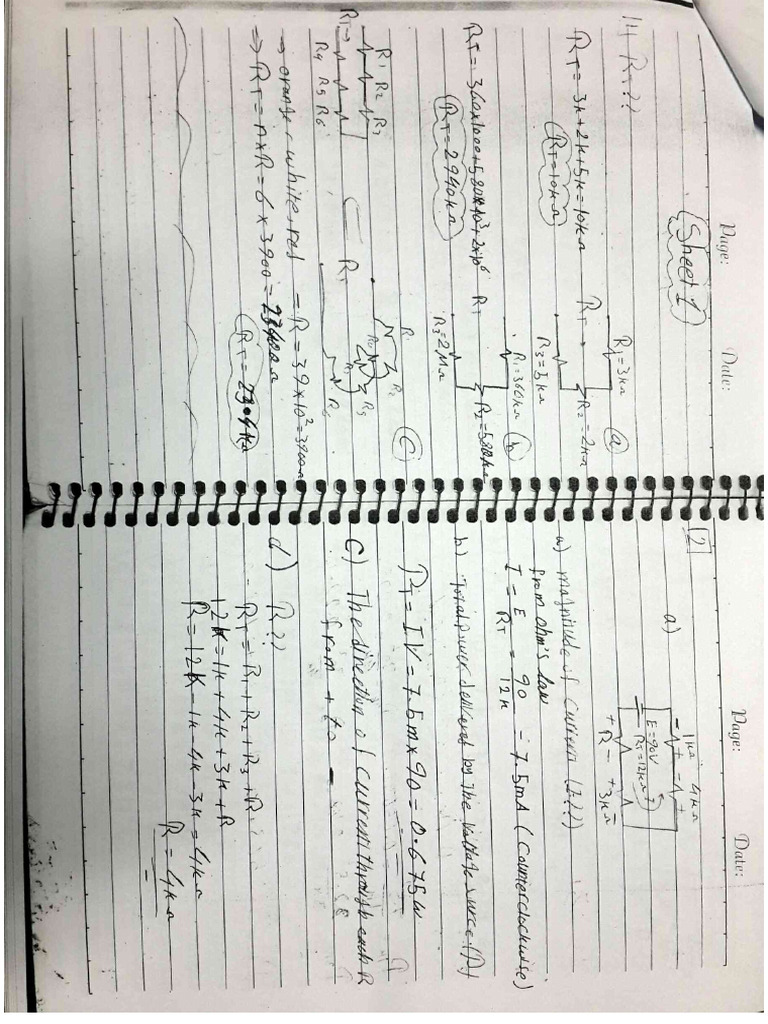 Page: Date:
Sheet 1
1) RT??
a
R1=3KΩ
RT = 3K+2K+5K=10KΩ
RT→
R2=2KΩ
RT=10KΩ
b
R1=360KΩ
RT = 360x1000+580x10³+2x10⁶
RT
R2=580KΩ
RT=2940KΩ
R3=2MΩ
C
R1 R2 R3
RT→
R4 R5 R6
RT
→ orange, white, red = R = 39x10²=3900Ω
→ RT = nxR = 6 x 3900 = 23400Ω
Page: Date:
2
a)
1KΩ 4KΩ
E=90V
RT=12KΩ
+ R - + 3KΩ
a) magnitude of current (I??)
from ohm's law
I = E/RT = 90/12K = 7.5mA (Counterclockwise)
b) Total power delivered by the voltage source (P)
PT = IV = 7.5m x 90 = 0.675W
C) The direction of current through each R
from + to -
d) R??
RT = R1 + R2 + R3 + R
12K = 1K + 4K + 3K + R
R = 12K - 1K - 4K - 3K = 4KΩ
R = 4KΩ